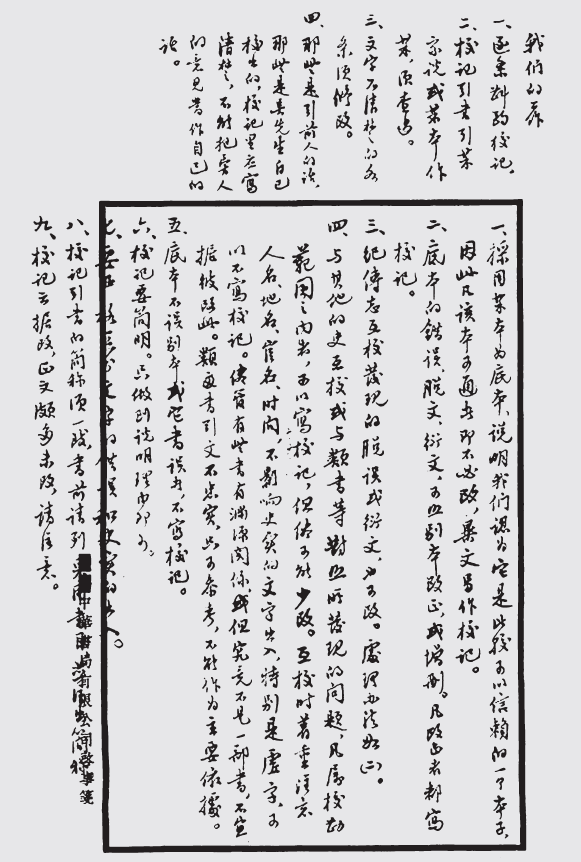 我们的工作
一、逐条斟酌校记。
二、校记引书引某
家说或某本作
某,须查过。
三、文字不清楚的各
条须修改。
四、那些是引前人的说,
那些是吴先生自己
校出的,校记里应写
清楚,不能把旁人
的意见当作自己的
说。
一、采用某本为底本,说明我们认为它是比较可以信赖的一个本子,
因此凡该本可通者即不必改,异文另作校记。
二、底本的错误、脱文、衍文,可照别本改正,或增删。凡改正者都写
校记。
三、纪传志互校发现的脱误或衍文,也可改。处理办法如(二)。
四、与其他的史互校或与类书等对照所发现的问题,凡属校勘
范围之内者,可以写校记,但尽可能少改。互校时着重注意
人名、地名、官名、时间,不影响史实的文字出入,特别是虚字,可
以不写校记。尽管有些书有渊源关系,或但究竟不是一部书,不宜
据彼改此。类书引文不忠实,只可参考,不能作为主要依据。
五、底本不误,别本或它书误者,不写校记。
六、校记要简明。只做到说明理由即可。
七、要 文字的 和史实的出入。
八、校记引书的简称须一致,书前请列
中华书局有限公司 笺
九、校记云据改,正文颇多未改,请注意。